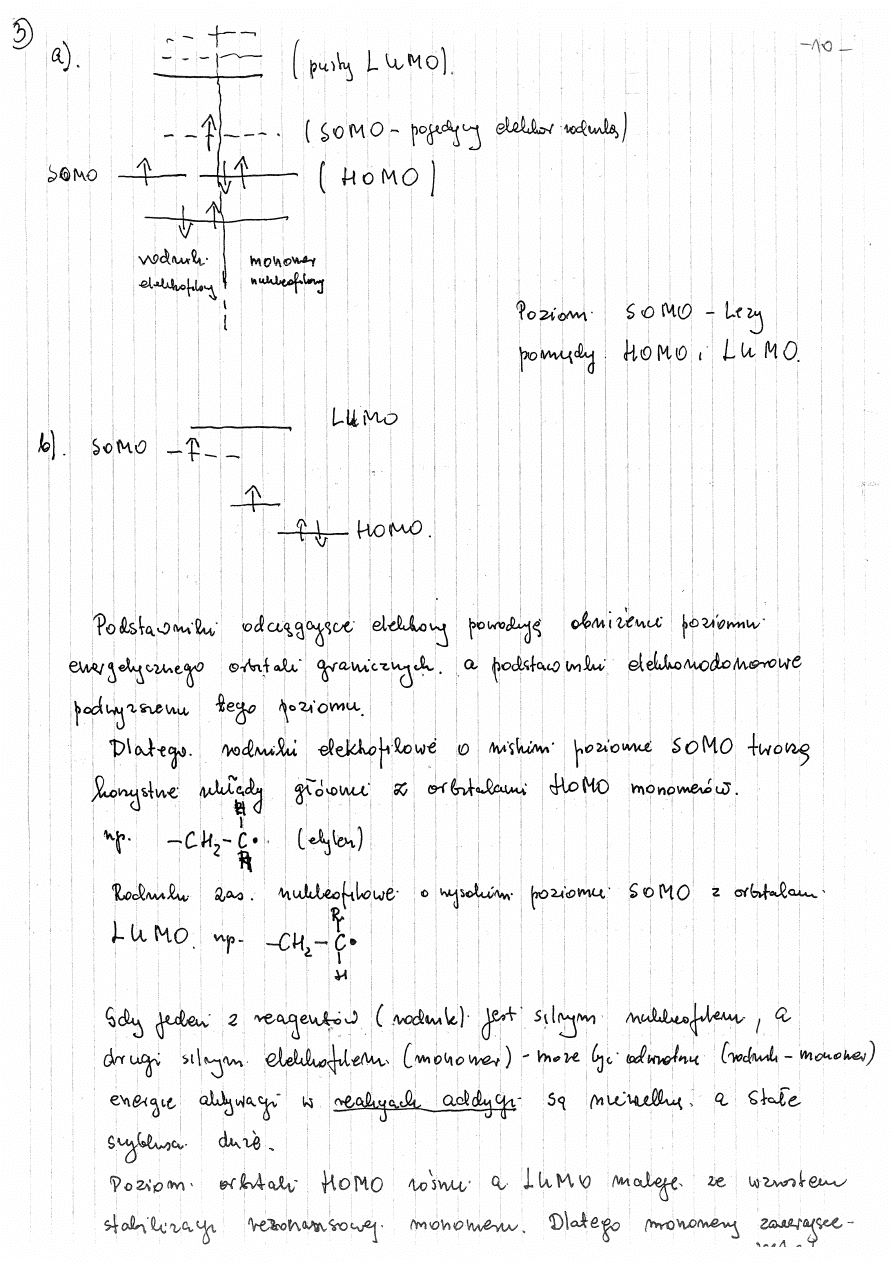 3
-10-
a).
(pusty LUMO).
(SOMO - pojedyczy elektron rodnika)
SOMO
(HOMO)
rodnik monomer
elektrofilowy nukleofilowy
Poziom SOMO - Leży
pomiędzy HOMO i LUMO.
LUMO
b). SOMO
HOMO.
Podstawniki odciągające elektrony powodują obniżenie poziomu
energetycznego orbitali granicznych. a podstawniki elektronodonorowe
podwyższenie tego poziomu.
Dlatego. rodniki elektrofilowe o niskim poziomie SOMO tworzą
korzystne układy głównie z orbitalami HOMO monomerów.
H
np. -CH2-C• (etylen)
H
Rodniki zaś. nukleofilowe o wysokim poziomie SOMO z orbitalami
R
LUMO. np- -CH2-C•
H
Gdy jeden z reagentów (rodnik) jest silnym nukleofilem, a
drugi silnym elektrofilem (monomer) - może być odwrotnie (rodnik-monomer)
energie aktywacji w reakcjach addycji są niewielkie. a stałe
szybkości duże.
Poziom orbitali HOMO rośnie a LUMO maleje ze wzrostem
stabilizacji rezonansowej monomeru. Dlatego monomery zawierające-